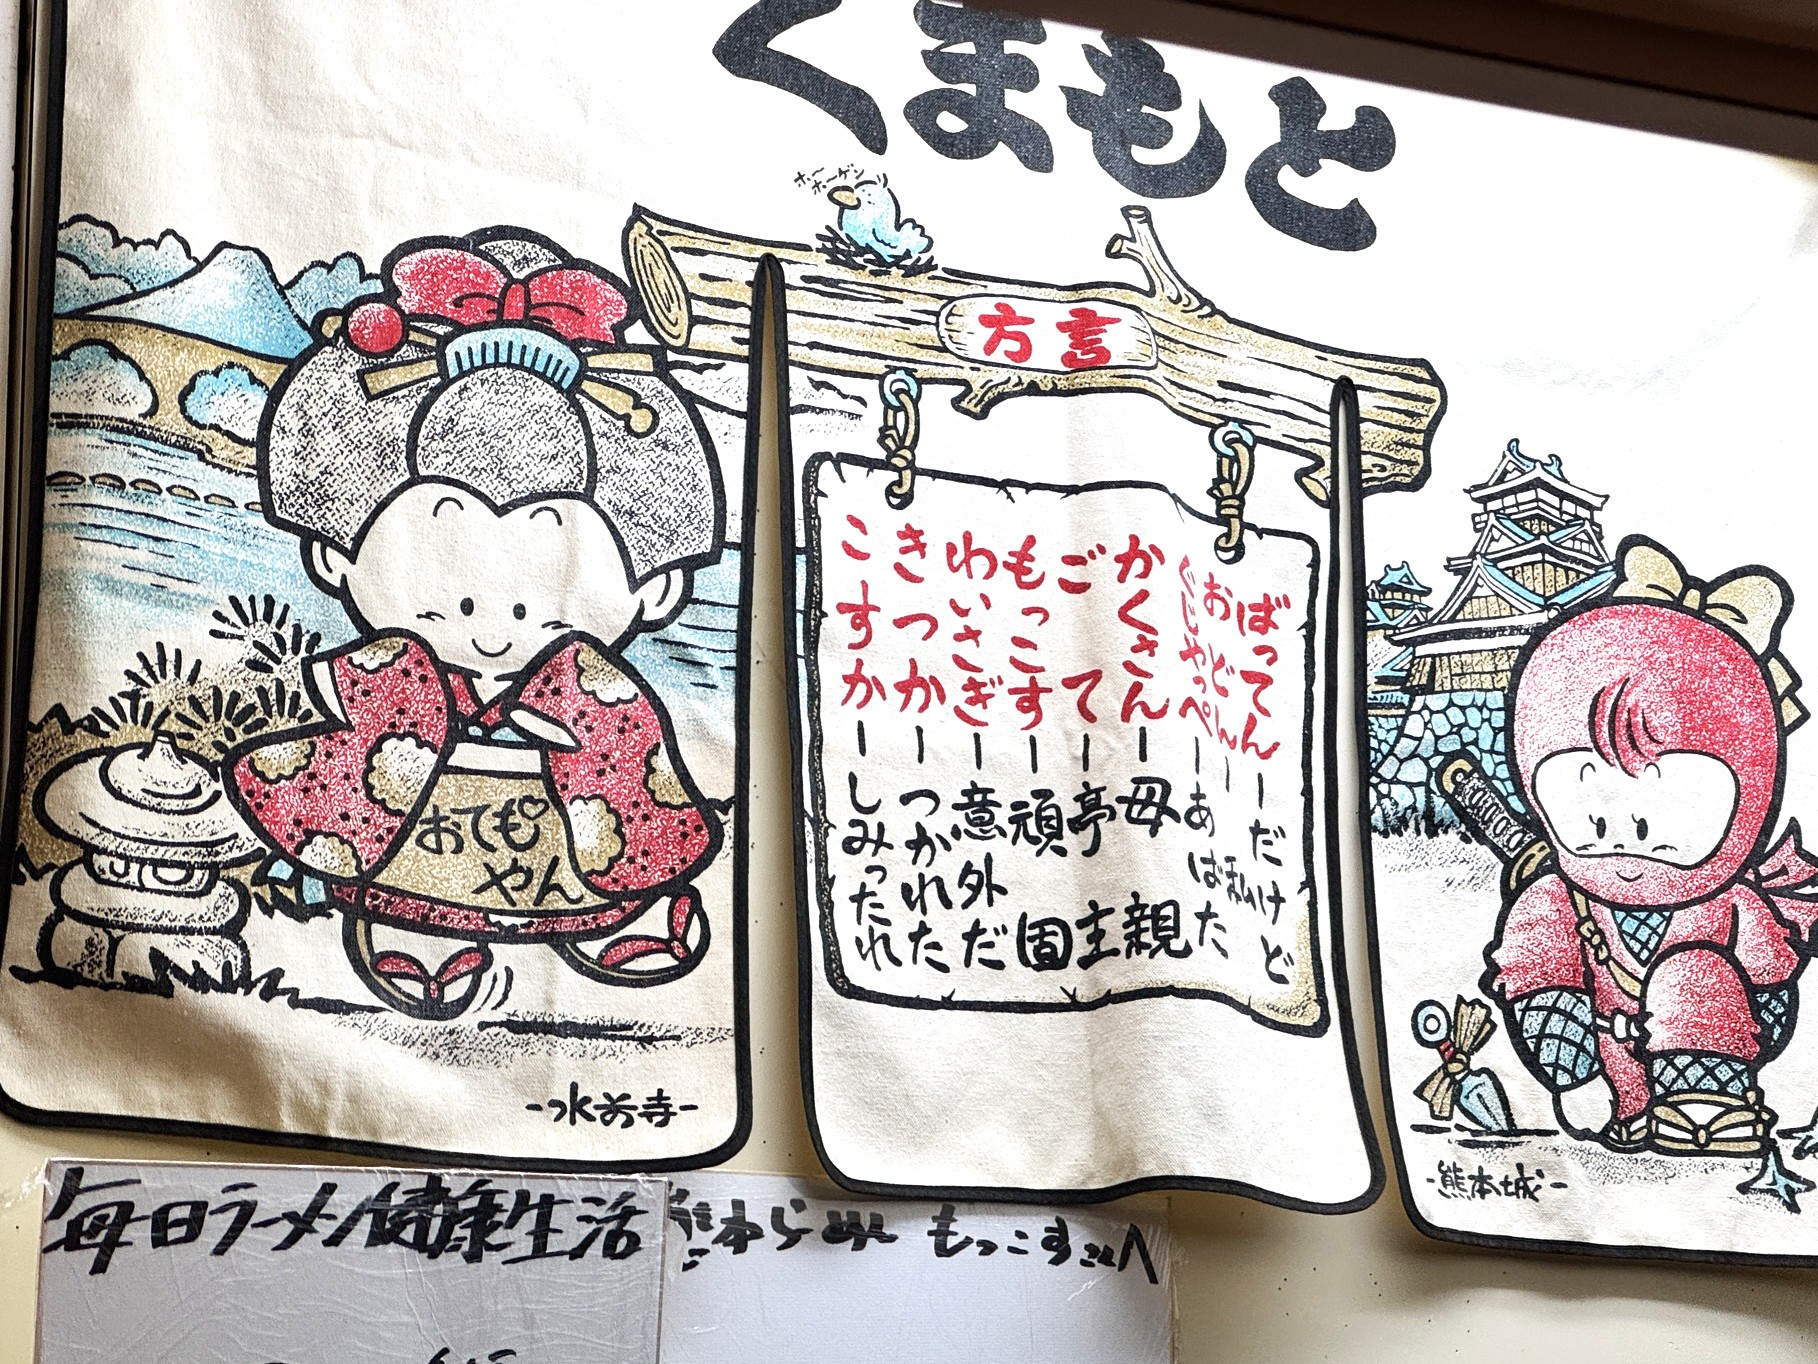 くまもと
ホーホーゲン
方言
ばってん―だけど
おどん―私
ぐじゃっぺ―あばた
かくさん―母親
ごて―亭主
もっこす―頑固
わいさぎ―意外だ
きつか―つかれた
こすか―しみったれ
おても
やん
-水前寺-
-熊本城-
毎日ラーメン健康生活
もっこすさんへ